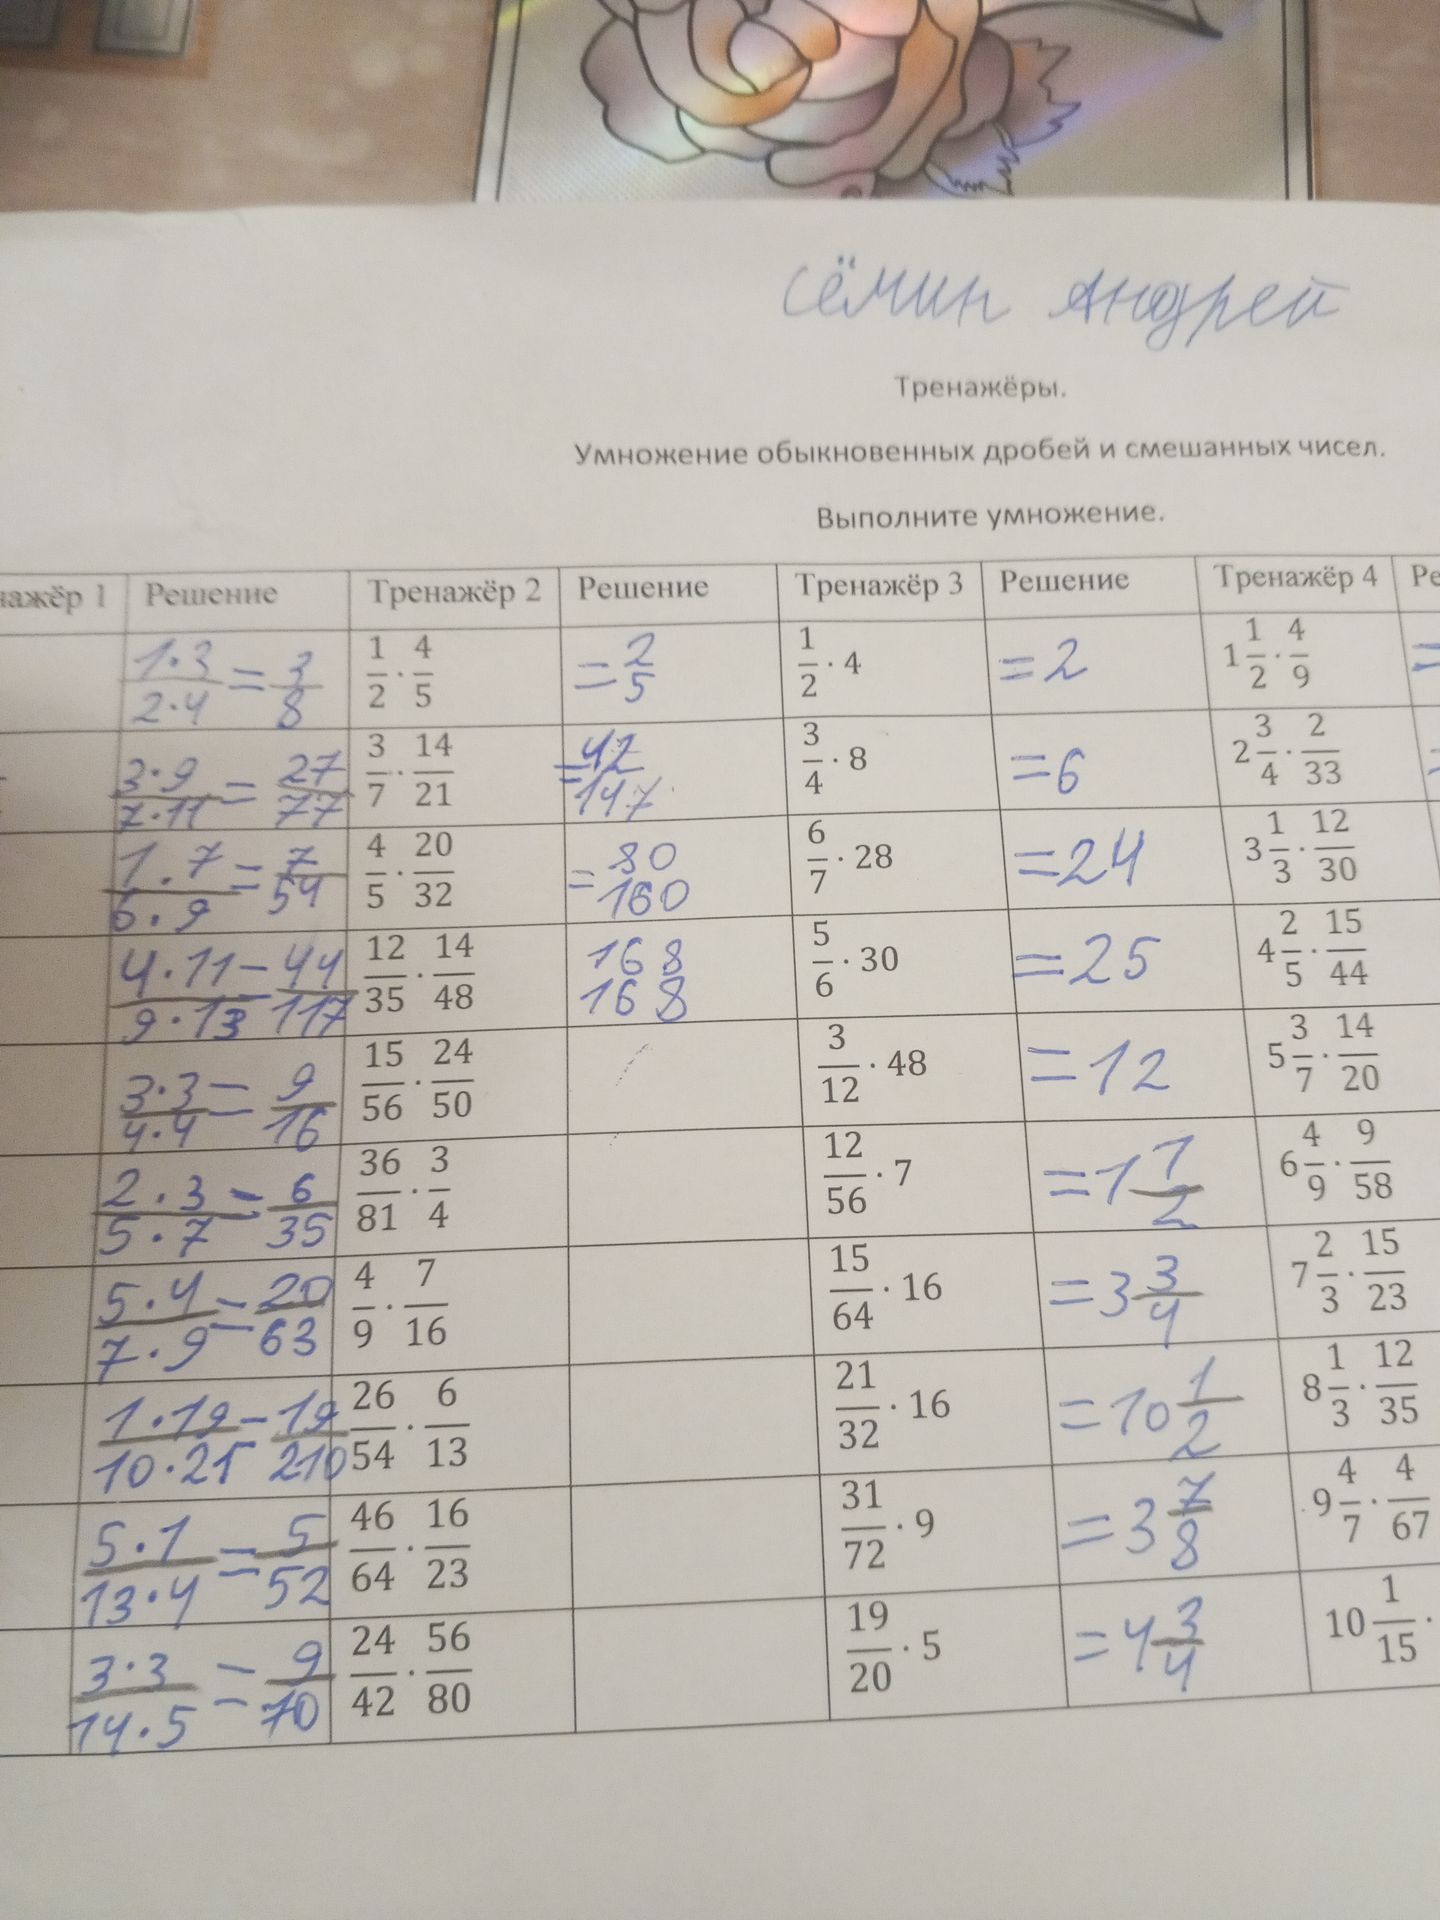 Сёмин Андрей
Тренажёры.
Умножение обыкновенных дробей и смешанных чисел.
Выполните умножение.
нажёр 1 Решение Тренажёр 2 Решение Тренажёр 3 Решение Тренажёр 4 Ре
1·3/2·4 = 3/8 1/2 · 4/5 = 2/5 1/2 · 4 = 2 1 1/2 · 4/9 =
3·9/7·11 = 27/77 3/7 · 14/21 = 42/147 3/4 · 8 = 6 2 3/4 · 2/33 =
1·7/6·9 = 7/54 4/5 · 20/32 = 80/160 6/7 · 28 = 24 3 1/3 · 12/30
4·11/9·13 = 44/117 12/35 · 14/48 168/168 5/6 · 30 = 25 4 2/5 · 15/44
3·3/4·4 = 9/16 15/56 · 24/50 3/12 · 48 = 12 5 3/7 · 14/20
2·3/5·7 = 6/35 36/81 · 3/4 12/56 · 7 = 1 1/2 6 4/9 · 9/58
5·4/7·9 = 20/63 4/9 · 7/16 15/64 · 16 = 3 3/4 7 2/3 · 15/23
1·19/10·21 = 19/210 26/54 · 6/13 21/32 · 16 = 10 1/2 8 1/3 · 12/35
5·1/13·4 = 5/52 46/64 · 16/23 31/72 · 9 = 3 7/8 9 4/7 · 4/67
3·3/14·5 = 9/70 24/42 · 56/80 19/20 · 5 = 4 3/4 10 1/15 ·